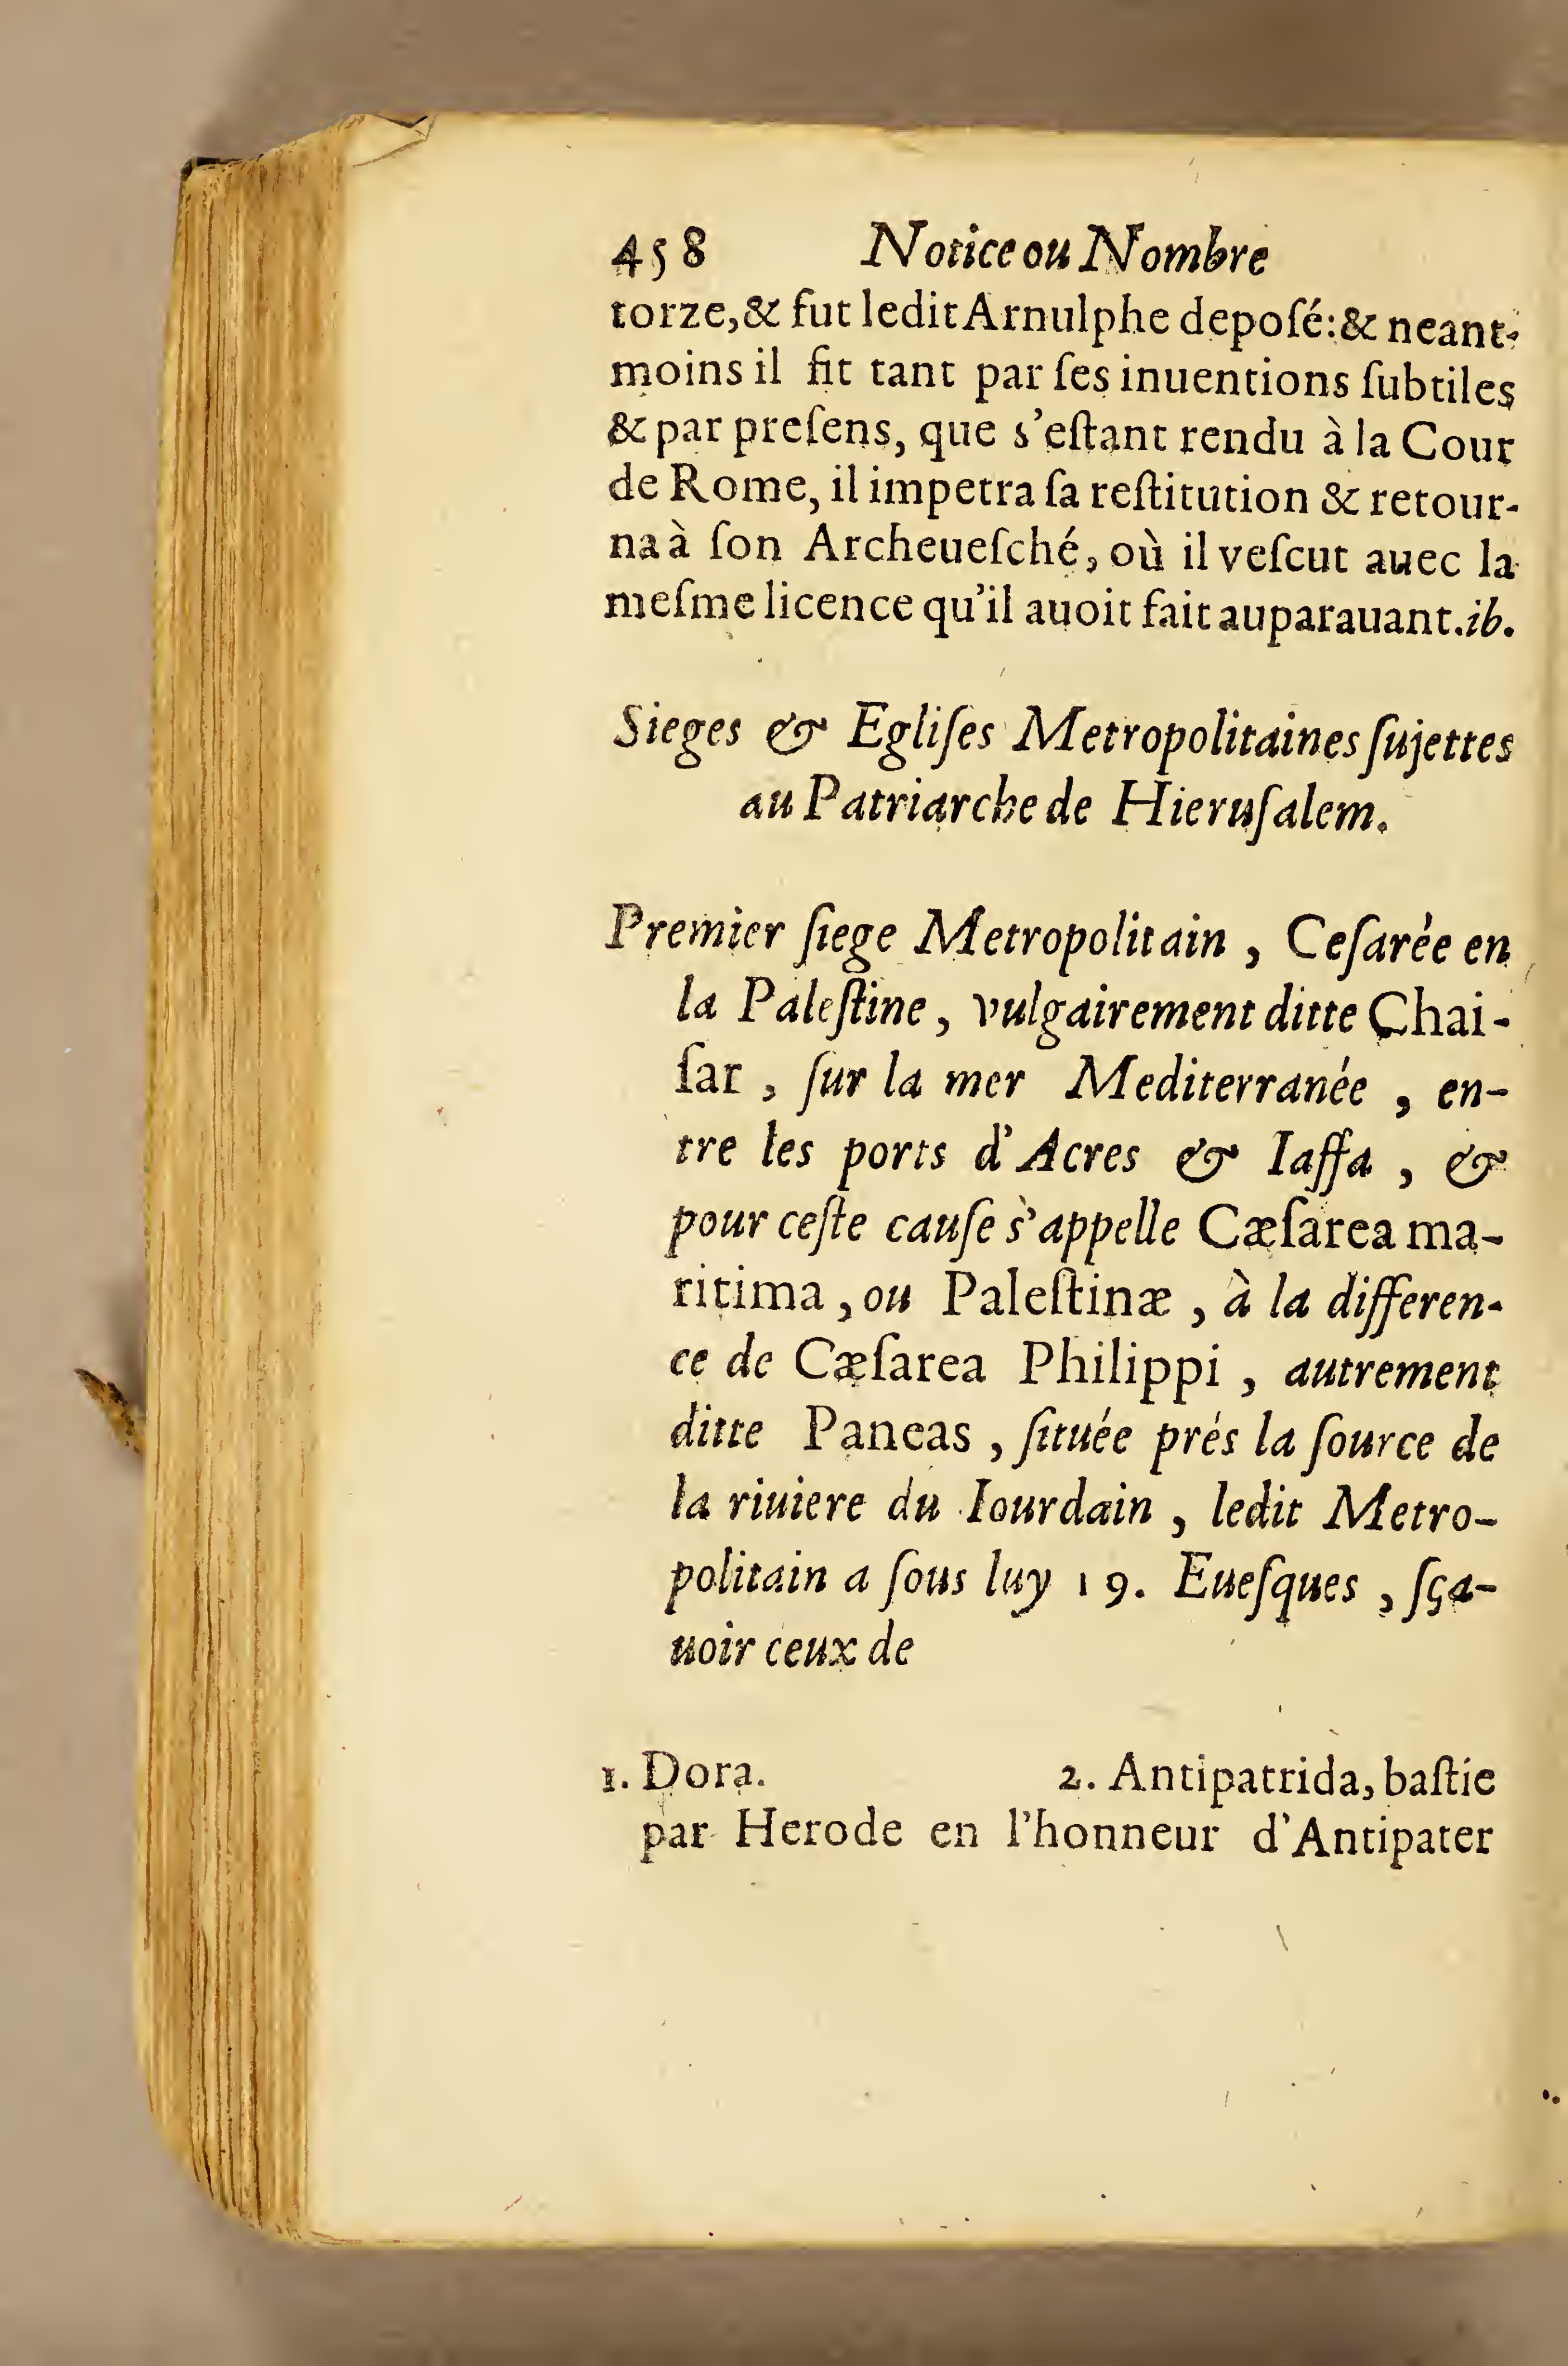 458 Notice ou Nombre
torze, & fut ledit Arnulphe deposé: & neant-
moins il fit tant par ſes inuentions ſubtiles
& par preſens, que s'eſtant rendu à la Cour
de Rome, il impetra ſa reſtitution & retour-
na à ſon Archeueſché, où il veſcut auec la
meſme licence qu'il auoit fait auparauant. ib.
Sieges & Egliſes Metropolitaines ſujettes
au Patriarche de Hieruſalem.
Premier ſiege Metropolitain, Ceſarée en
la Paleſtine, vulgairement ditte Chai-
ſar, ſur la mer Mediterranée, en-
tre les ports d'Acres & Iaffa, &
pour ceſte cauſe s'appelle Cæſarea ma-
ritima, ou Paleſtinæ, à la differen-
ce de Cæſarea Philippi, autrement
ditte Paneas, ſituée prés la ſource de
la riuiere du Iourdain, ledit Metro-
politain a ſous luy 19. Eueſques, ſça-
uoir ceux de
1. Dora. 2. Antipatrida, baſtie
par Herode en l'honneur d'Antipater